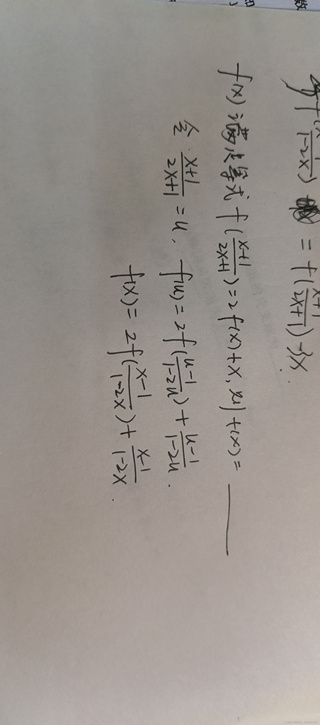 f(\frac{x-1}{1-2x}) = f(\frac{x+1}{2x+1}) - 3x.
f(x)满足等式 f(\frac{x+1}{2x+1})=2f(x)+x, 则f(x)=____
令 \frac{x+1}{2x+1}=u, f(u)=2f(\frac{u-1}{1-2u})+\frac{u-1}{1-2u}.
f(x)=2f(\frac{x-1}{1-2x})+\frac{x-1}{1-2x}.